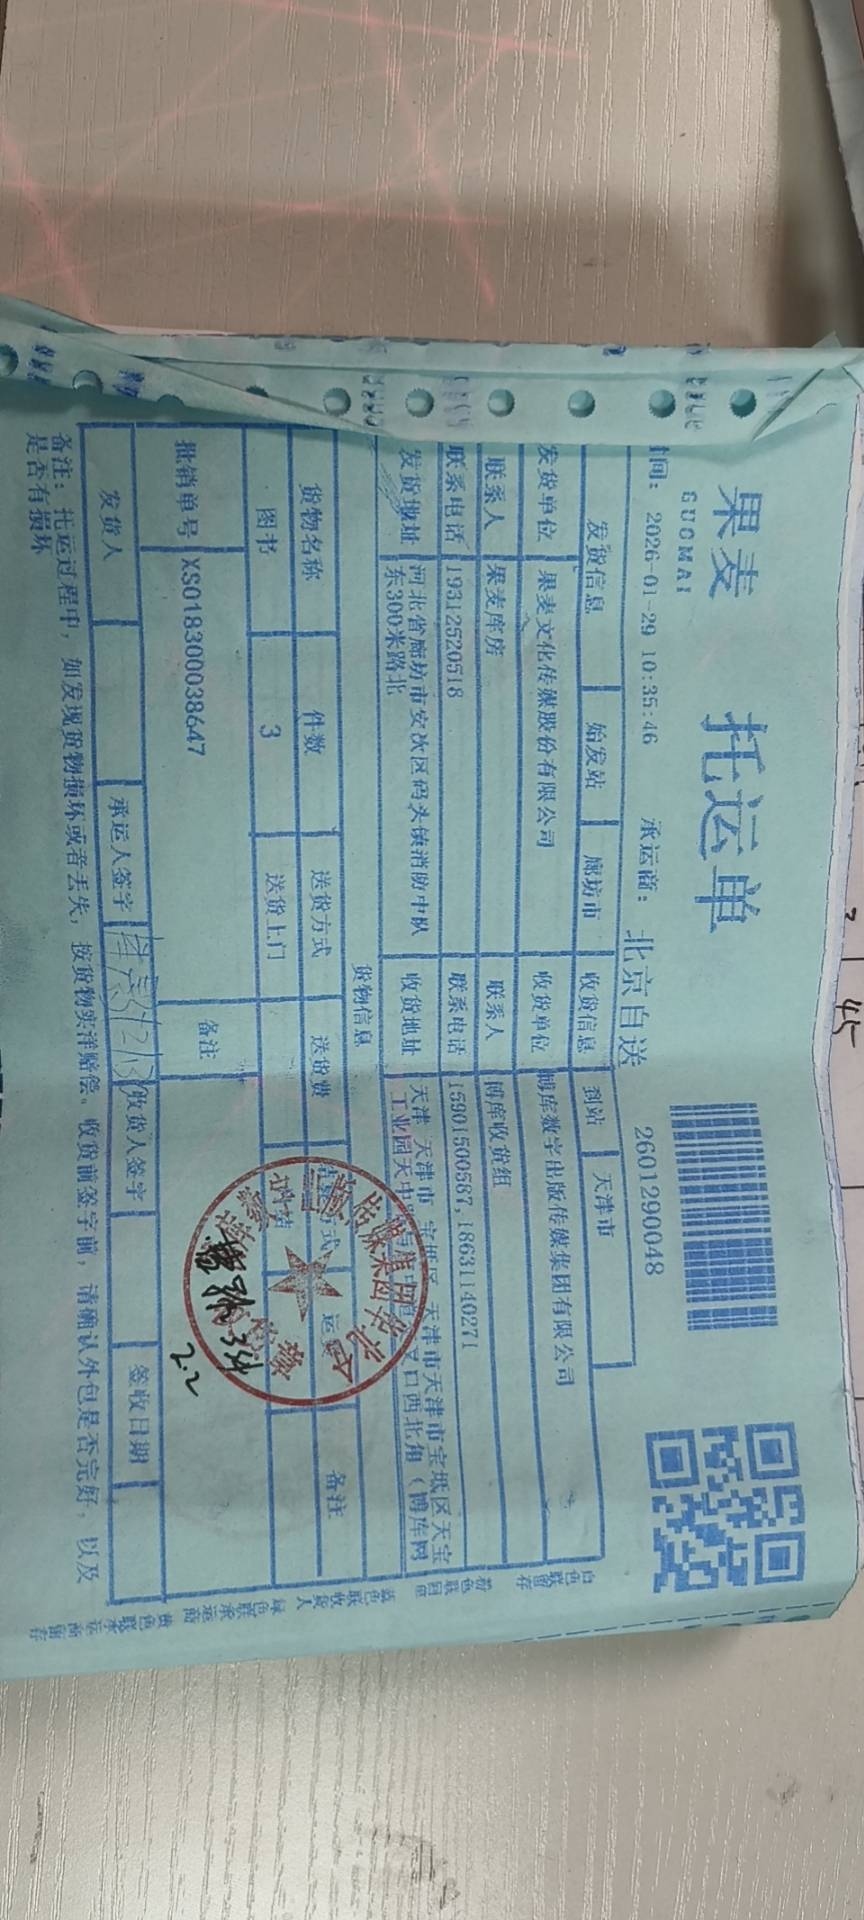 果麦 托运单
GUOMAI
间: 2026-01-29 10:35:46 承运商: 北京自送 2601290048
发货信息 始发站 廊坊市 收货信息 到站 天津市
发货单位 果麦文化传媒股份有限公司 收货单位 博库数字出版传媒集团有限公司
联系人 果麦库房 联系人 博库收货组
联系电话 19312520518 联系电话 15901500587,18631140271
发货地址 河北省廊坊市安次区码头镇消防中队 收货地址 天津 天津市 宝坻区 天津市天津市宝坻区天宝
东300米路北 工业园天中路与 口西北角(博库网
货物信息
货物名称 件数 送货方式 送货费 方式 运费 备注
图书 3 送货上门
批销单号 XS018300038647 备注
2.2
发货人 承运人签字 收货人签字 签收日期
备注: 托运过程中, 如发现货物损坏或者丢失, 按货物实洋赔偿。收货前签字前, 请确认外包是否完好, 以及
是否有损坏
白色联留存
粉色联回单
蓝色联收货人
绿色联承运商
黄色联承运商留存
45